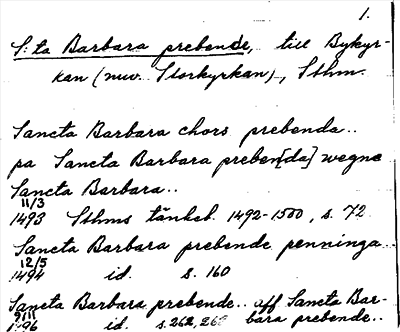 1.
S:ta Barbara prebende, till Bykyr-
kan (nuv. Storkyrkan), Sthm.
Sancta Barbara chors prebenda..
pa Sancta Barbara preben[da] wegne
Sancta Barbara..
11/3
1493 Sthms tänkeb. 1492-1500, s. 72
Sancta Barbara prebende penninga..
12/5
1494 id. s. 160
Sancta Barbara prebende.. aff Sancta Bar-
9/11 bara prebende..
1496 id. s. 262,